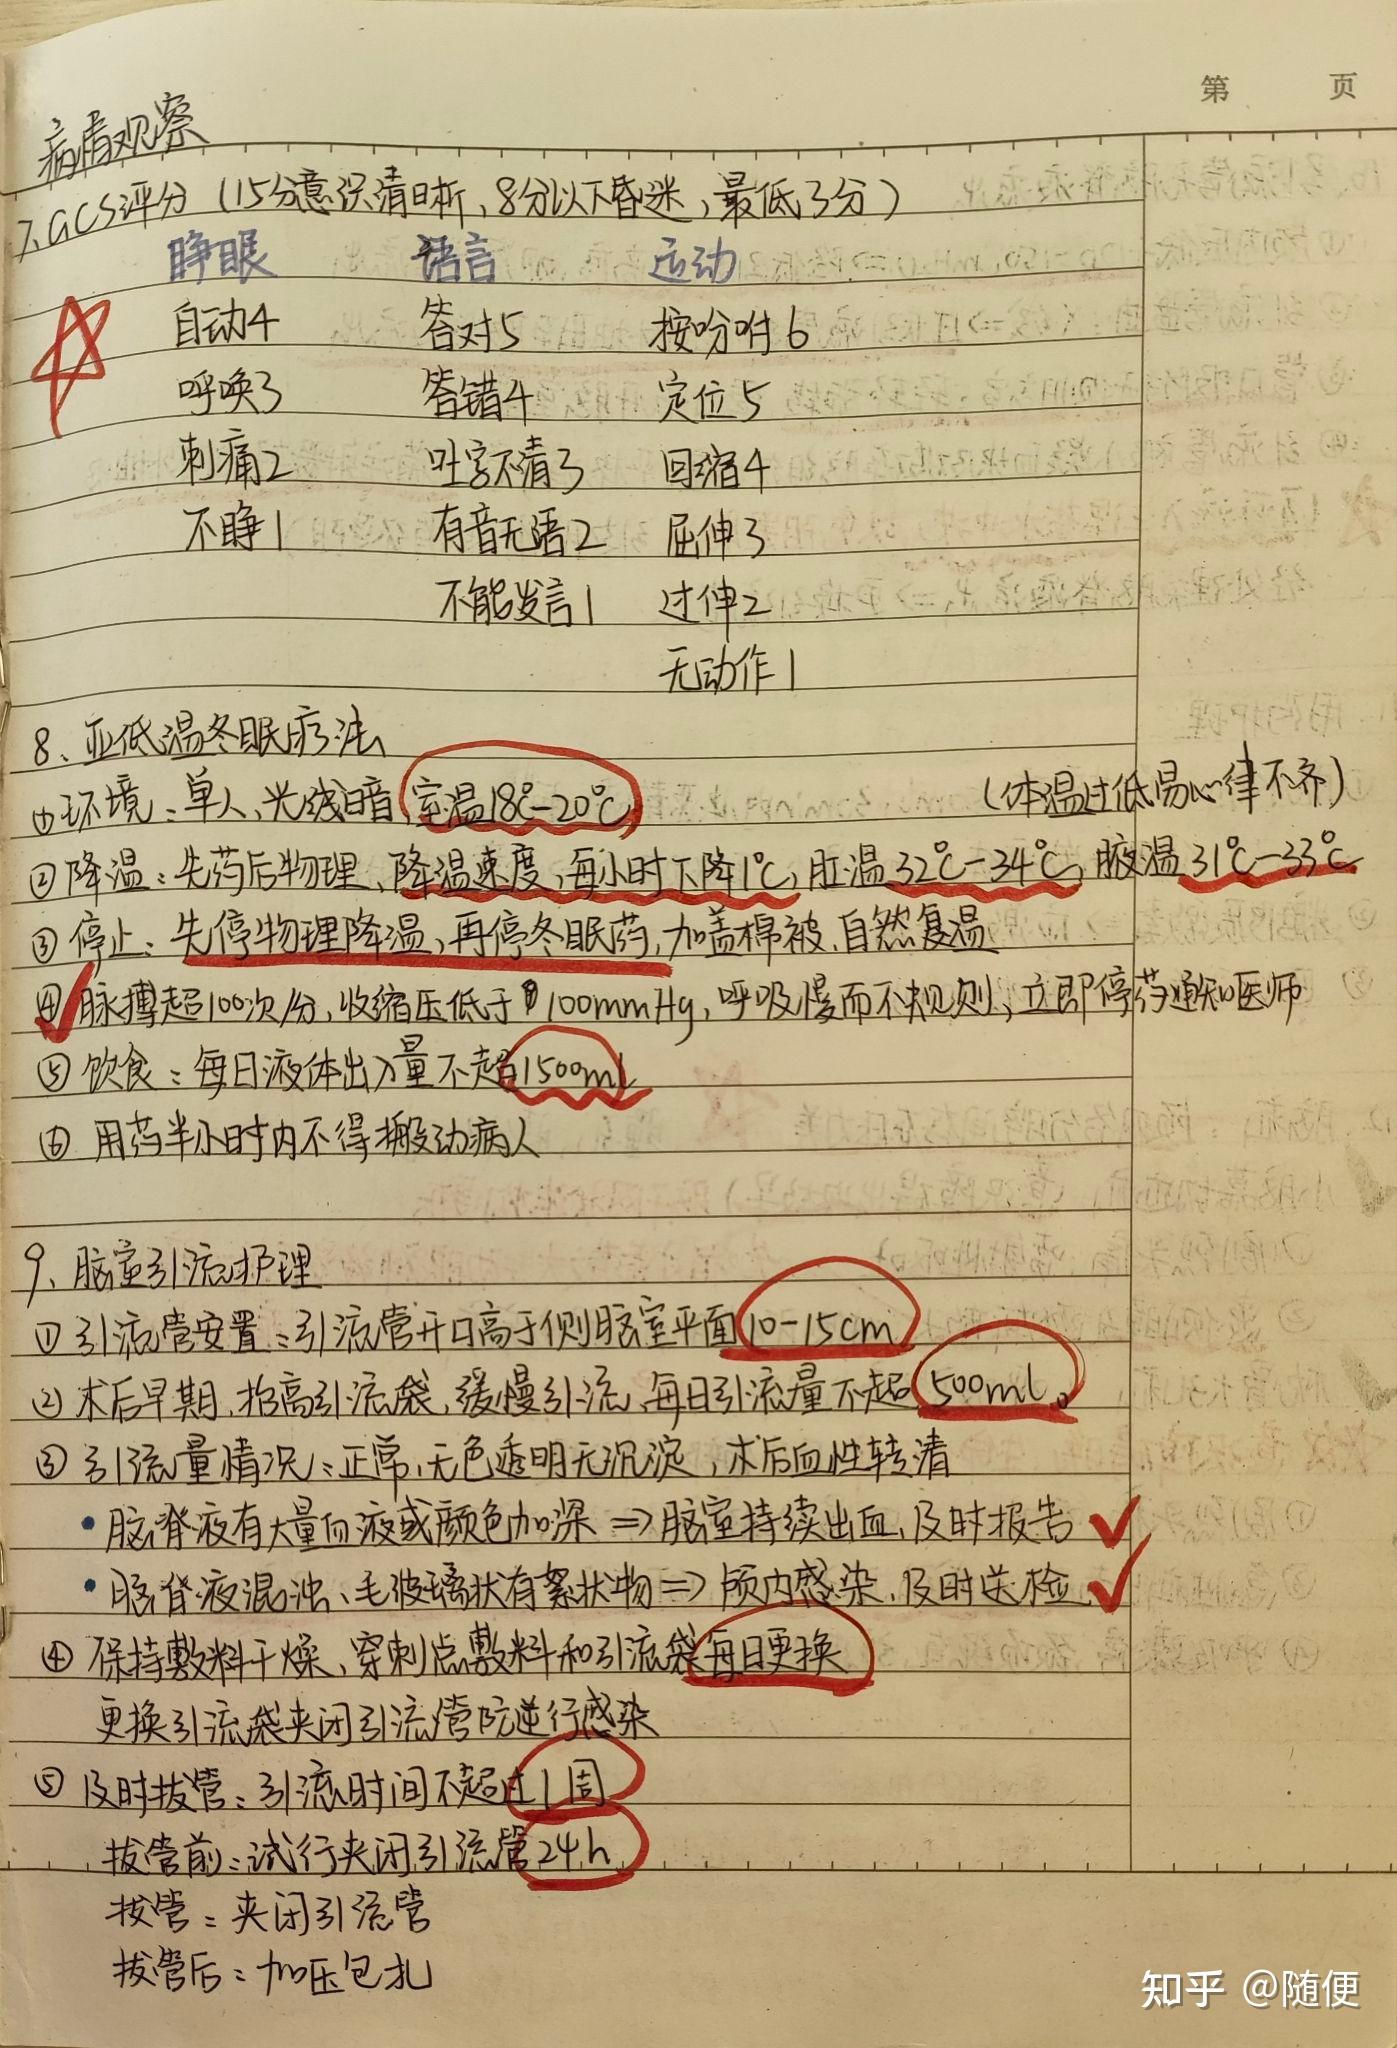 第 页
病情观察
7、GCS评分（15分意识清晰，8分以下昏迷，最低3分）
睁眼 语言 运动
自动4 答对5 按吩咐6
呼唤3 答错4 定位5
刺痛2 吐字不清3 回缩4
不睁1 有音无语2 屈伸3
不能发言1 过伸2
无动作1
8、亚低温冬眠疗法
①环境：单人、光线暗，室温18℃-20℃， （体温过低易心律不齐）
②降温：先药后物理、降温速度，每小时下降1℃，肛温32℃-34℃，腋温31℃-33℃
③停止：先停物理降温，再停冬眠药，加盖棉被，自然复温
④脉搏超100次/分，收缩压低于100mmHg，呼吸慢而不规则，立即停药通知医师
⑤饮食：每日液体出入量不超1500ml
⑥用药半小时内不得搬动病人
9、脑室引流护理
①引流管安置：引流管开口高于侧脑室平面10-15cm
②术后早期，抬高引流袋，缓慢引流，每日引流量不超500ml。
③引流量情况：正常，无色透明无沉淀，术后血性转清
•脑脊液有大量血液或颜色加深⇒脑室持续出血，及时报告
•脑脊液混浊、毛玻璃状有絮状物⇒颅内感染，及时送检
④保持敷料干燥，穿刺点敷料和引流袋每日更换
更换引流袋夹闭引流管防逆行感染
⑤及时拔管：引流时间不超过1周
拔管前：试行夹闭引流管24h
拔管：夹闭引流管
拔管后：加压包扎
知乎 @随便